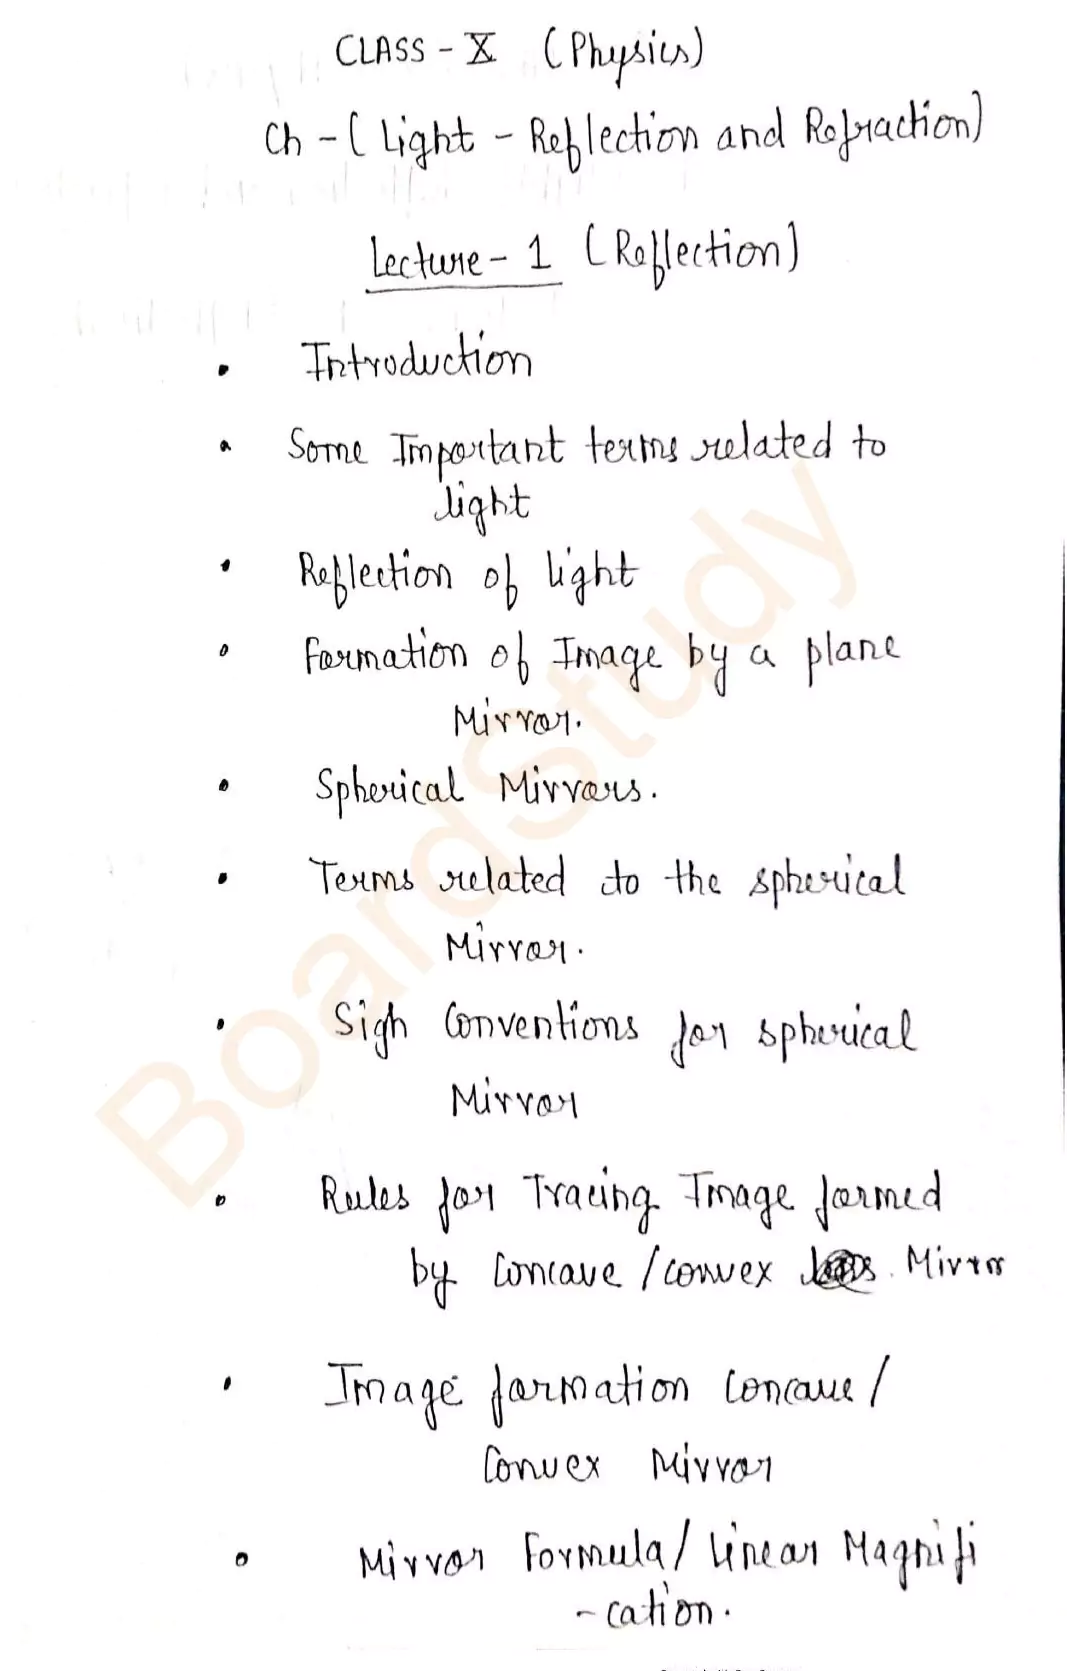 CLASS - X (Physics)
Ch - ( Light - Reflection and Refraction)
Lecture - 1 (Reflection)
• Introduction
• Some Important terms related to
light
• Reflection of light
• Formation of Image by a plane
Mirror.
• Spherical Mirrors.
• Terms related to the spherical
Mirror.
• Sigh Conventions for spherical
Mirror
• Rules for Tracing Image formed
by Concave / convex Mirror
• Image formation Concave /
Convex Mirror
• Mirror Formula / Linear Magnifi
- cation.
BoardStudy